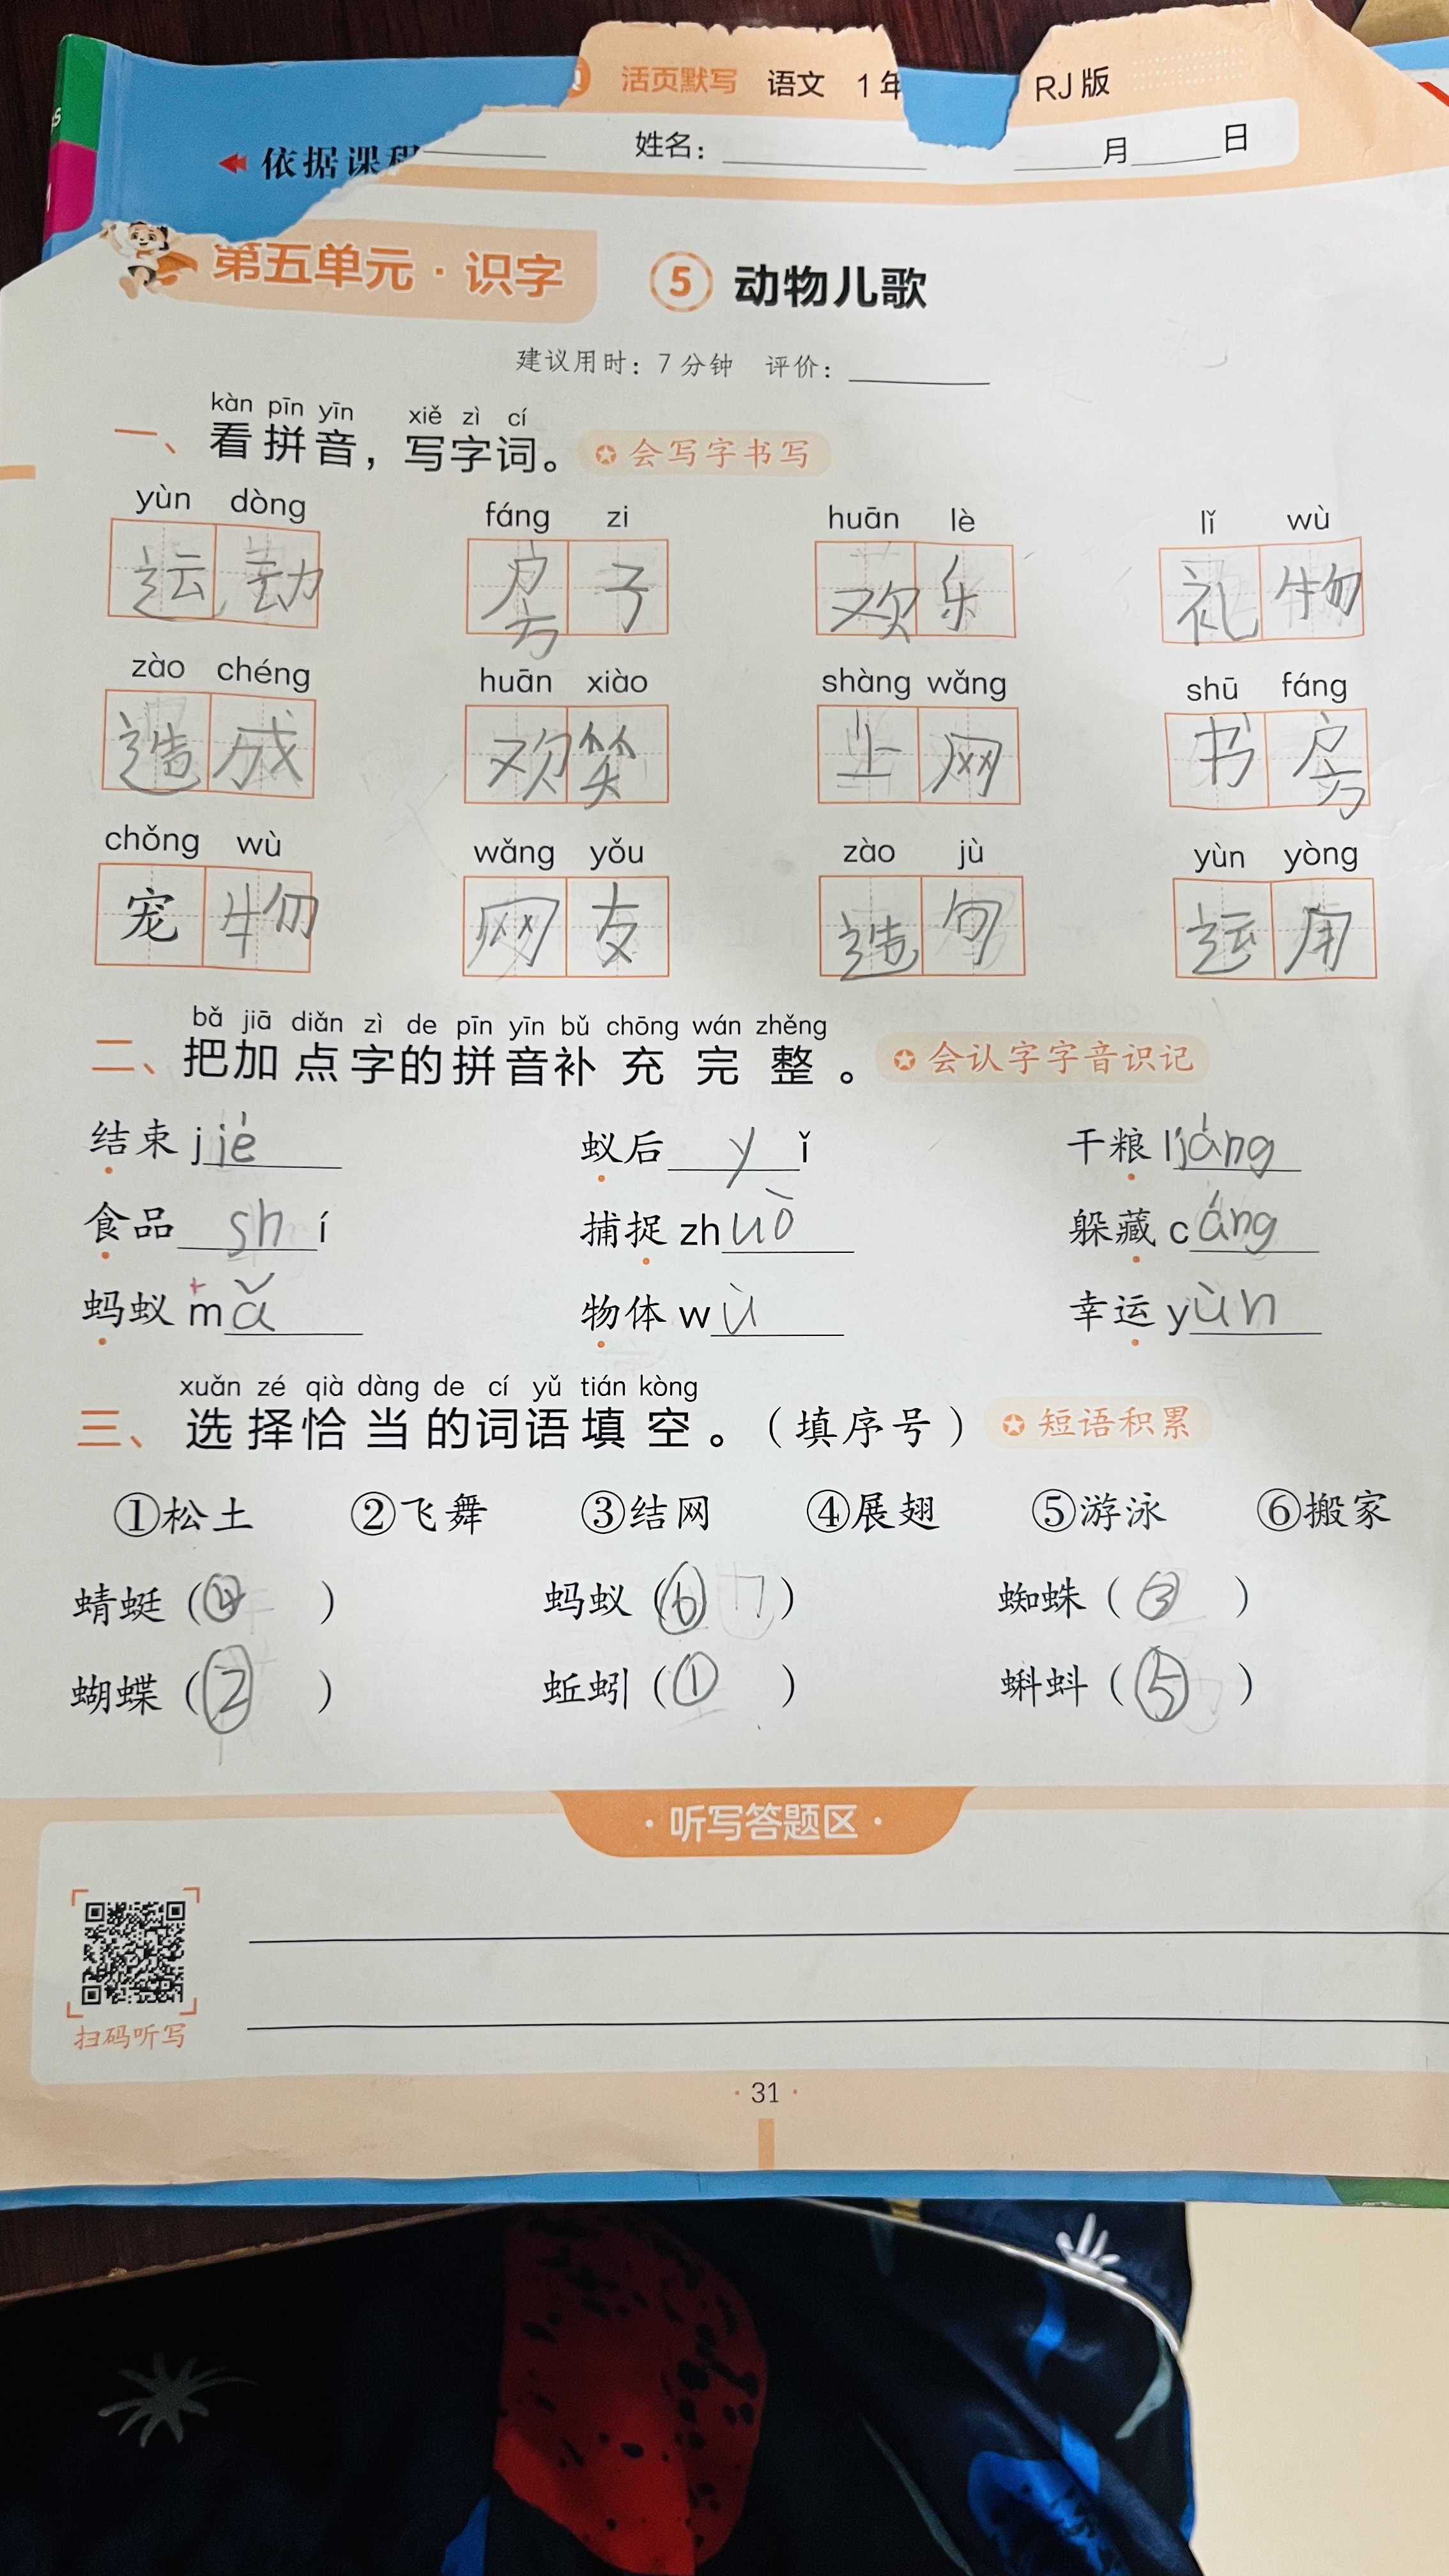 活页默写 语文 1年 RJ版
依据课程
姓名：
月 日
第五单元·识字 ⑤ 动物儿歌
建议用时：7分钟 评价：
kàn pīn yīn xiě zì cí
一、看拼音，写字词。 会写字书写
yùn dòng fáng zi huān lè lǐ wù
运动 房子 欢乐 礼物
zào chéng huān xiào shàng wǎng shū fáng
造成 欢笑 上网 书房
chǒng wù wǎng yǒu zào jù yùn yòng
宠物 网友 造句 运用
bǎ jiā diǎn zì de pīn yīn bǔ chōng wán zhěng
二、把加点字的拼音补充完整。 会认字字音识记
结束 jjé 蚁后 yǐ 干粮 liáng
食品 shí 捕捉 zhuō 躲藏 cáng
蚂蚁 mǎ 物体 wù 幸运 yùn
xuǎn zé qià dàng de cí yǔ tián kòng
三、选择恰当的词语填空。（填序号） 短语积累
①松土 ②飞舞 ③结网 ④展翅 ⑤游泳 ⑥搬家
蜻蜓（④） 蚂蚁（⑥） 蜘蛛（③）
蝴蝶（②） 蚯蚓（①） 蝌蚪（⑤）
·听写答题区·
扫码听写
·31·